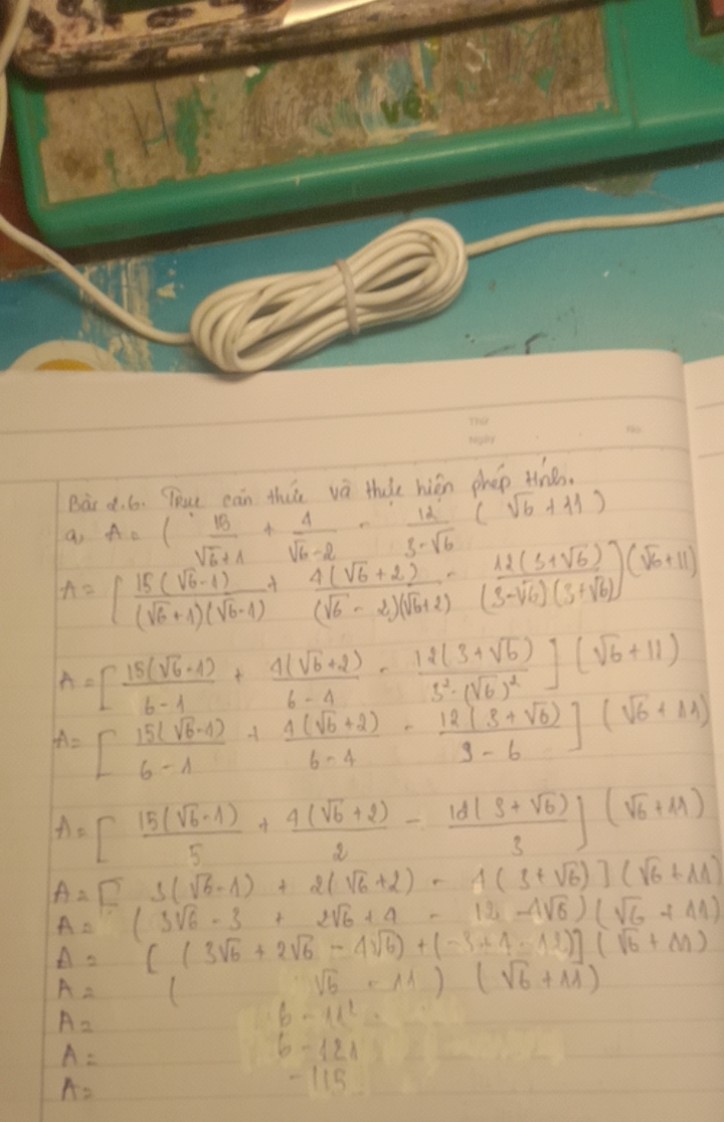 vẽ
Thứ
Ngày No.
Bài 2.6. Trục căn thức và thực hiện phép tính.
a, A = ( 15/(√6+1) + 4/(√6-2) - 12/(3-√6) ( √6 + 11 )
A = [ 15(√6-1)/((√6+1)(√6-1)) + 4(√6+2)/((√6-2)(√6+2)) - 12(3+√6)/((3-√6)(3+√6)) ] (√6+11)
A = [ 15(√6-1)/(6-1) + 4(√6+2)/(6-4) - 12(3+√6)/(3²-(√6)²) ] (√6+11)
A = [ 15(√6-1)/(6-1) + 4(√6+2)/(6-4) - 12(3+√6)/(9-6) ] (√6+11)
A = [ 15(√6-1)/5 + 4(√6+2)/2 - 12(3+√6)/3 ] (√6+11)
A = [ 3(√6-1) + 2(√6+2) - 4(3+√6) ] (√6+11)
A = ( 3√6 - 3 + 2√6 + 4 - 12 - 4√6 ) ( √6 + 11 )
A = [ ( 3√6 + 2√6 - 4√6 ) + ( -3 + 4 - 12 ) ] ( √6 + 11 )
A = ( √6 - 11 ) ( √6 + 11 )
A = 6 - 11²
A = 6 - 121
A = -115